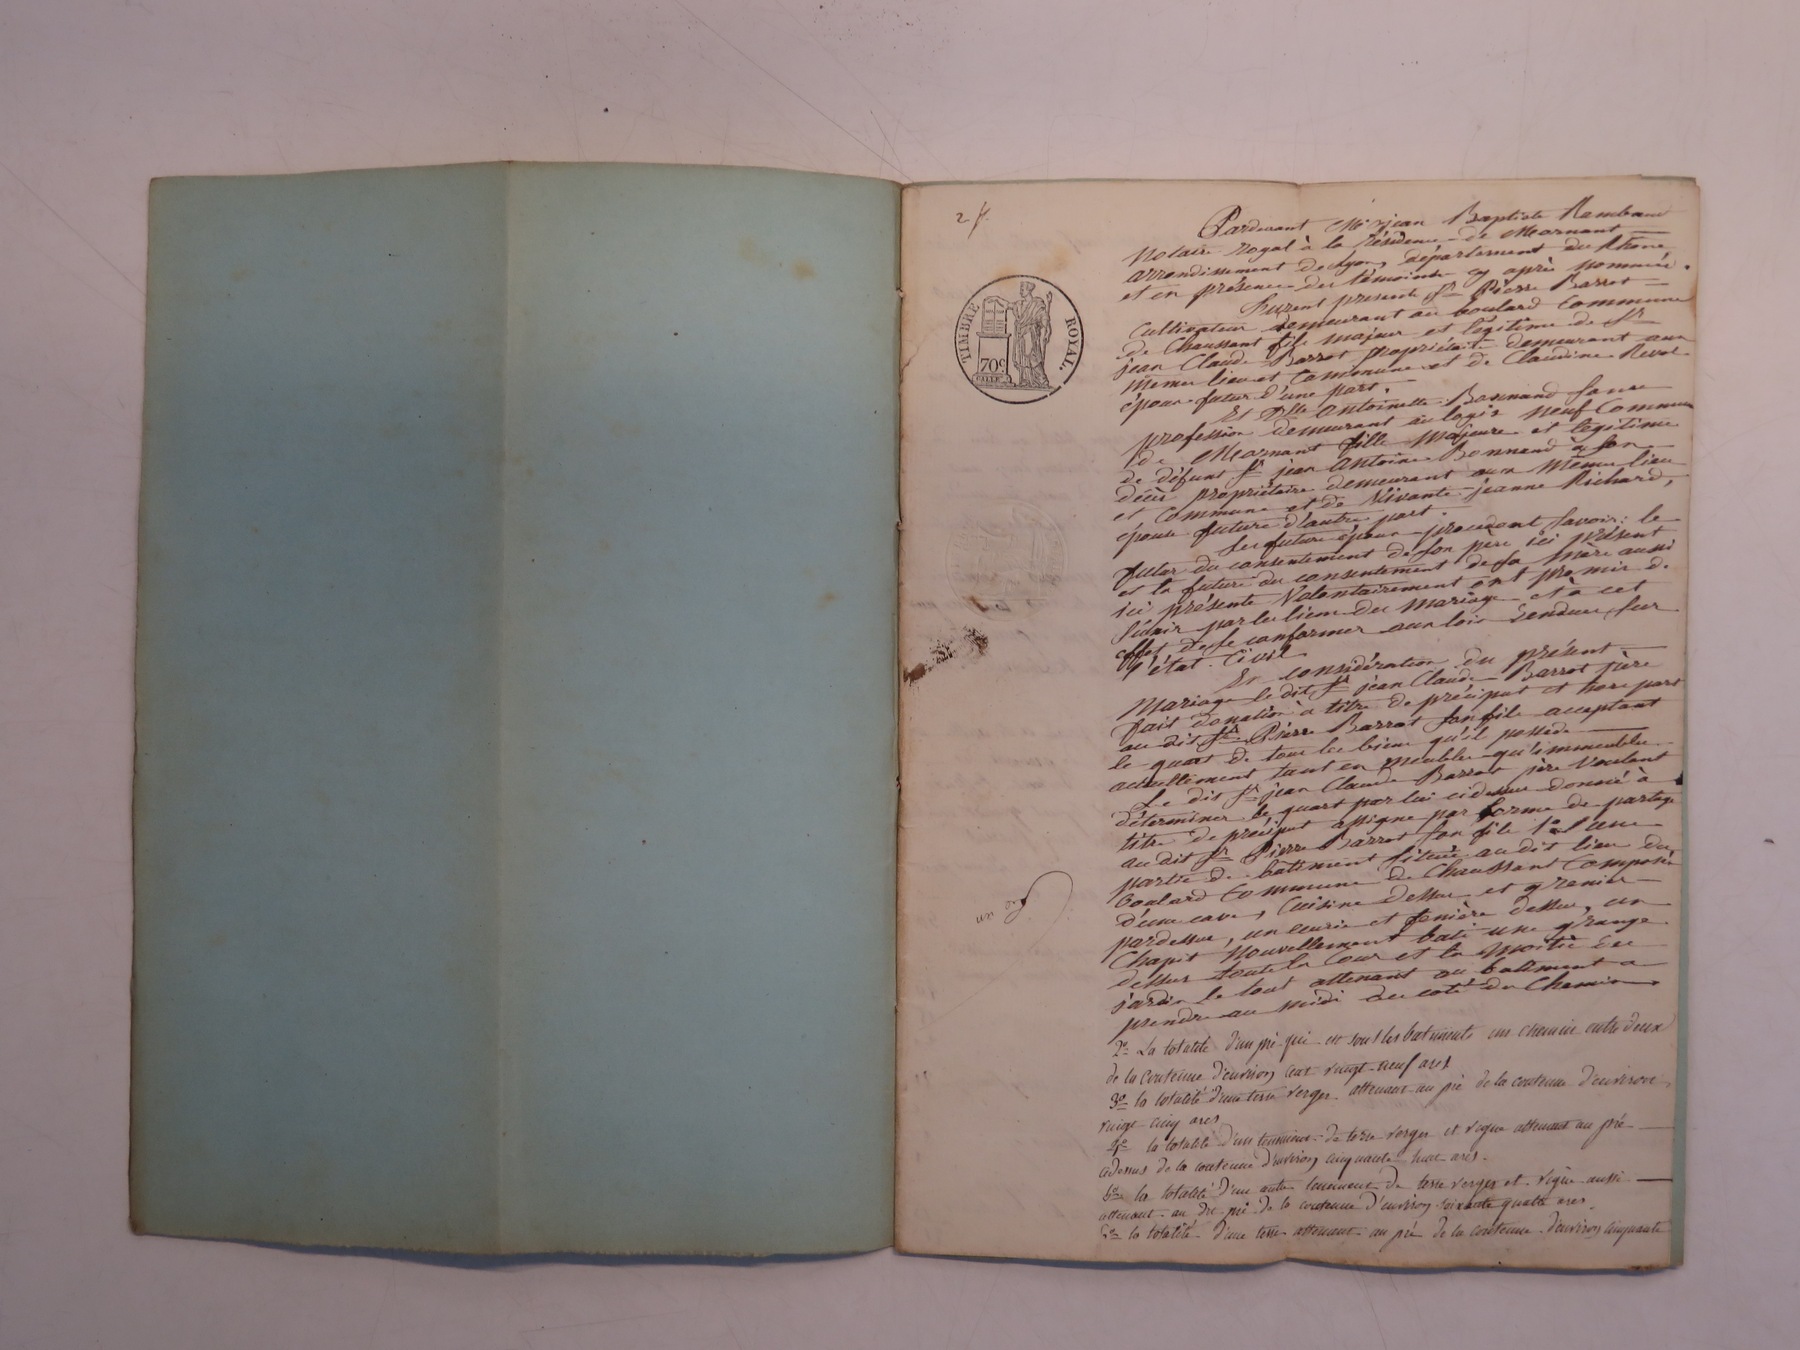 2 f.
TIMBRE ROYAL.
70c
Pardevant Me jean Baptiste Rambaud
Notaire royal à la résidence de Mornant
arrondissement de Lyon, département du Rhône
et en présence des témoins cy après nommés.
Furent présents Sr Pierre Barrot
Cultivateur demeurant au boulard Commune
de Chaussant fils majeur et légitime de Sr
jean Claude Barrot propriétaire demeurant aux
mêmes lieu et Commune et de Claudine Revol
époux futur d'une part.
Et Dlle Antoinette Bonnand sans
profession demeurant au logis neuf Commune
de Mornant fille majeure et légitime
de défunt Sr jean Antoine Bonnand à son
décès propriétaire demeurant aux mêmes lieu
et Commune et de vivante jeanne Richard,
épouse future d'autre part.
Les futurs époux procédant savoir: le
futur du consentement de son père ici présent
et la future du consentement de sa mère aussi
ici présente volontairement ont promis de
s'unir par les liens du mariage et à cet
effet de se conformer aux lois rendues sur
l'état Civil
En considération du présent
Mariage le dit Sr jean Claude Barrot père
fait donation à titre de préciput et hors part
au dit Sr Pierre Barrot son fils acceptant
le quart de tous les biens qu'il possède
actuellement tant en meubles qu'immeubles
Le dit Sr jean Claude Barrot père voulant
déterminer le quart par lui cidessus donné à
titre de préciput assigne par forme de partage
au dit Sr Pierre Barrot son fils 1o
partie de batiment située au dit lieu du
boulard Commune de Chaussant Composée
d'une cave, Cuisine dessus et grenier
pardessus, un écurie et fenière dessus, un
Chapit nouvellement bati une grange
dessus toute la Cour et la moitié du
jardin le tout attenant au batiment a
prendre au midi du coté du Chemin
2o La totalité d'un pré qui est sous les batiments un chemin entre deux
de la contenue d'environ cent vingt-neuf ares
3o la totalité d'une terre verger attenant au pré de la contenue d'environ
vingt-cinq ares
4o la totalité d'un tenement de terre verger et vigne attenant au pré
cidessus de la contenue d'environ cinquante huit ares.
la totalité d'un autre tenement de terre verger et vigne aussi
attenant au dit pré de la contenue d'environ soixante quatre ares.
la totalité d'une terre attenant au pré de la contenue d'environ cinquante